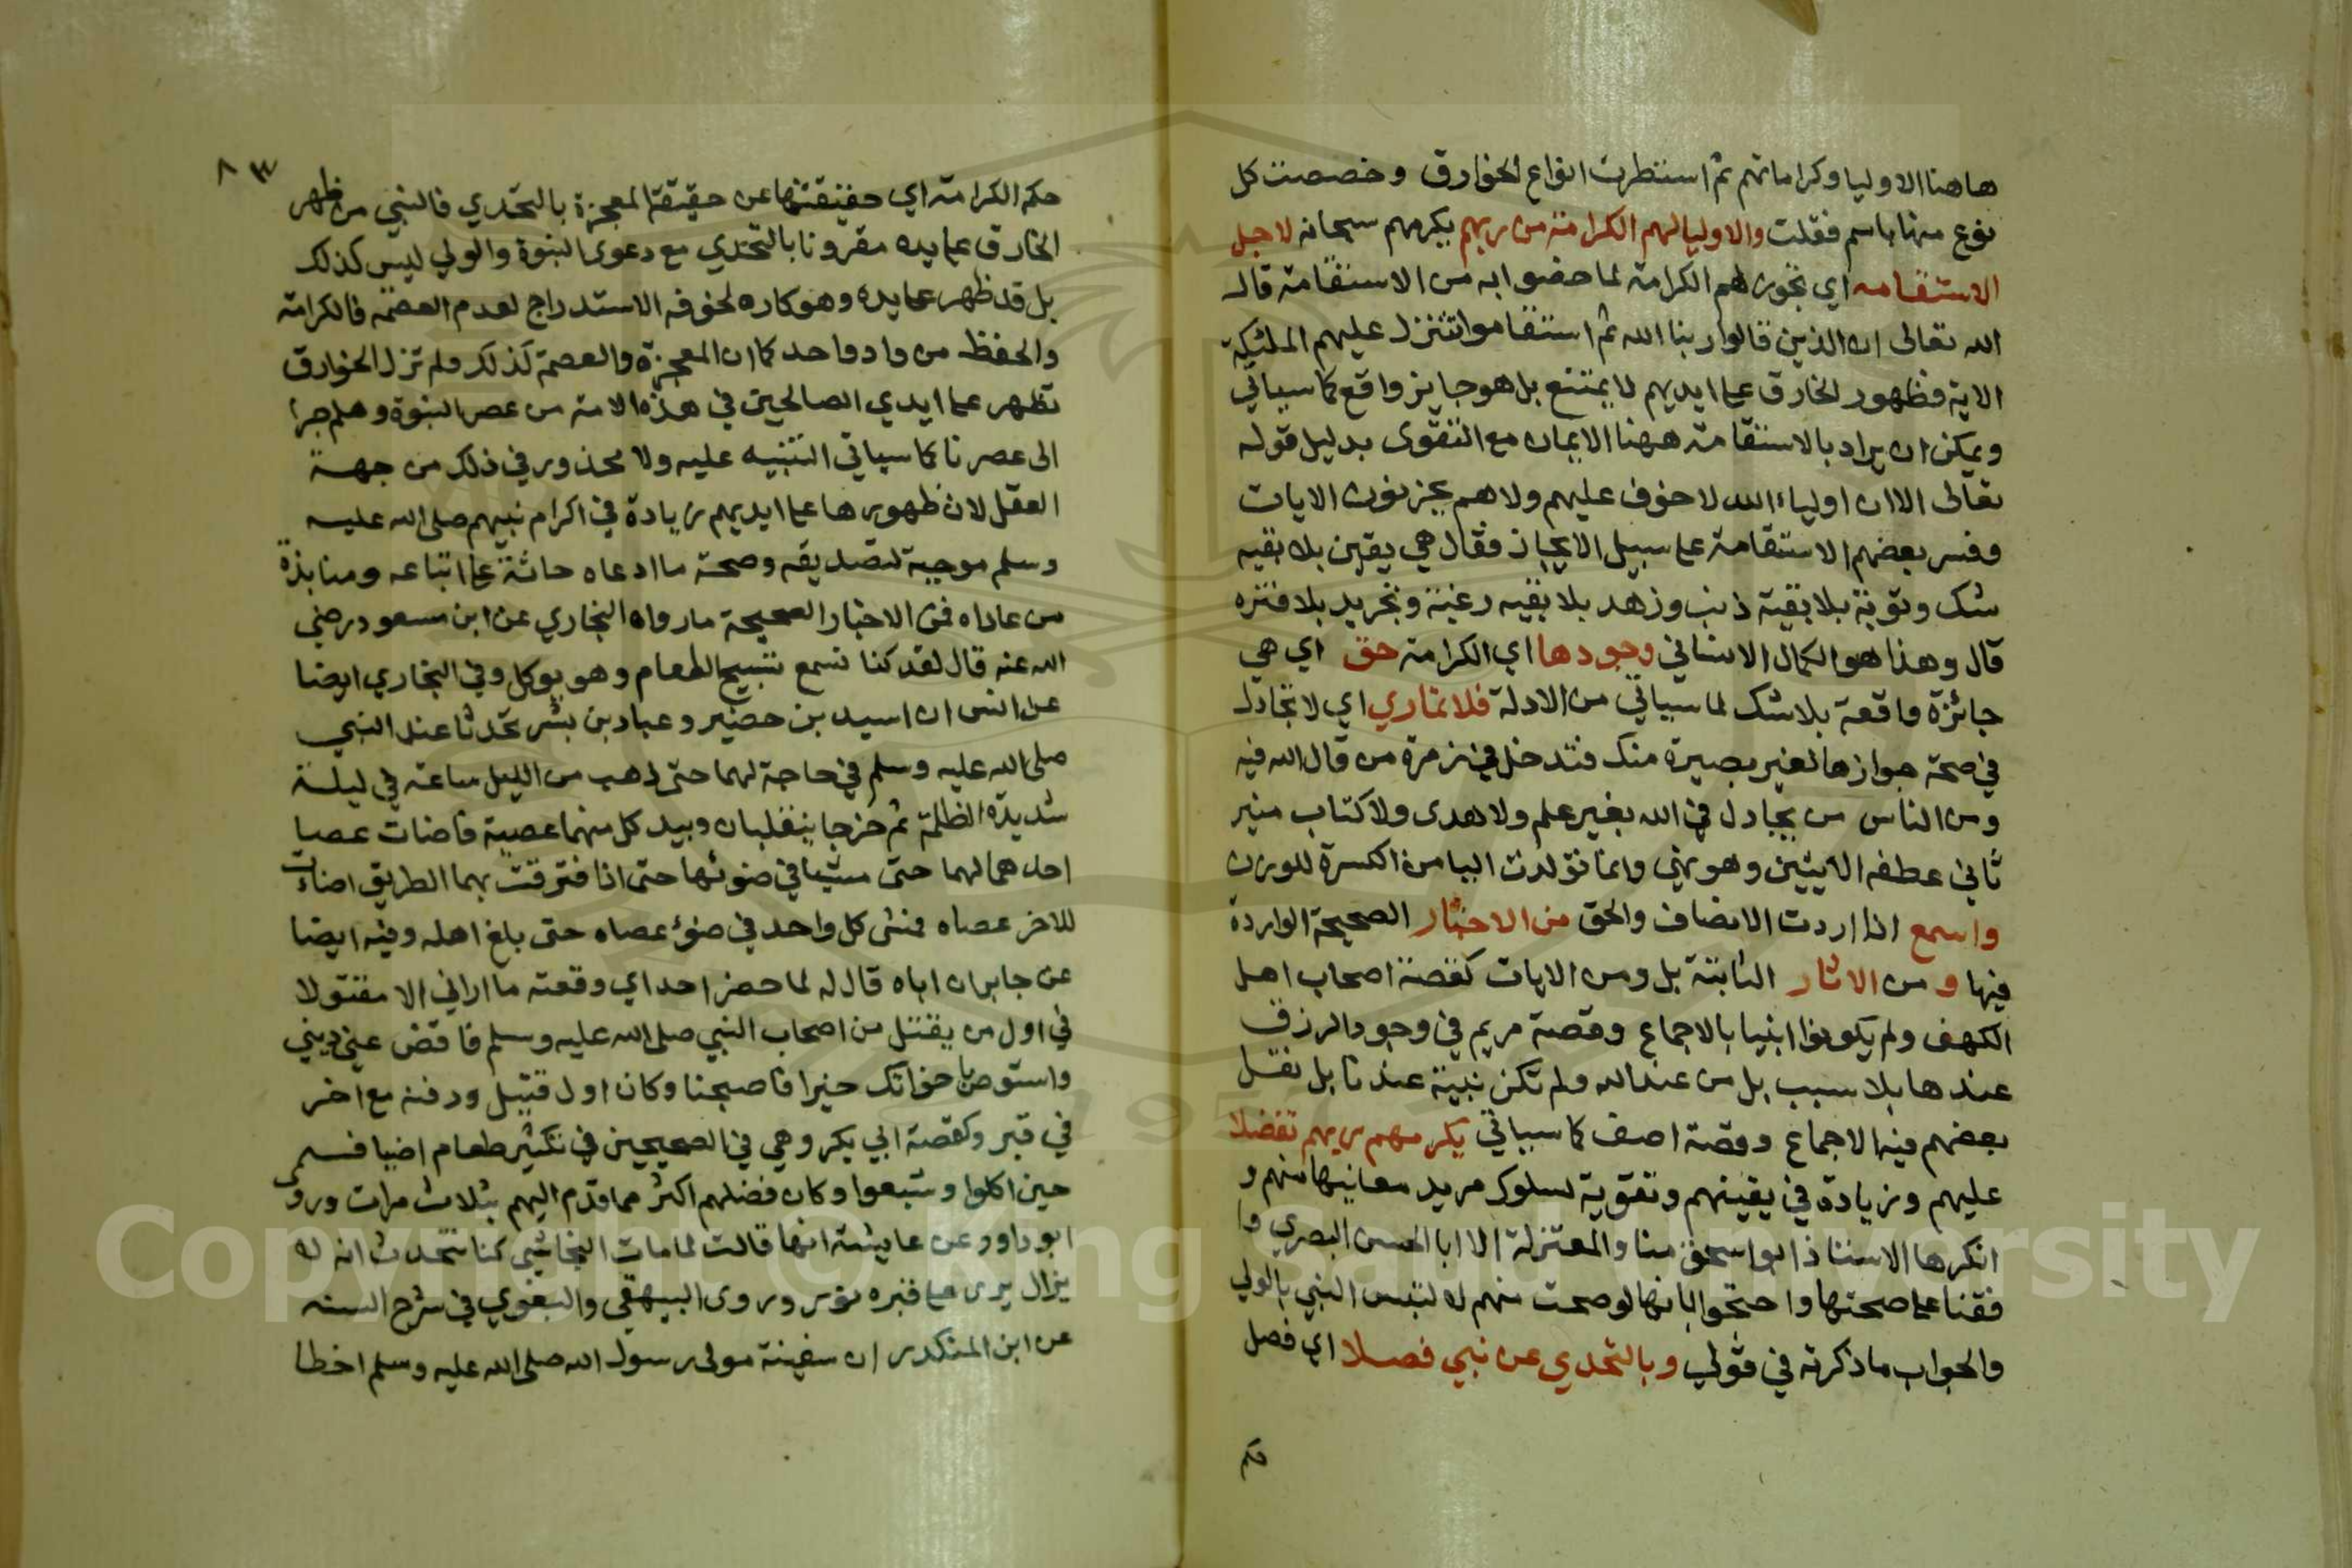 هاهنا الاوليا وكراماتهم ثم استطردت انواع الخوارق وخصصت كل
نوع منها باسم فقلت والاوليا لهم الكرامة من ربهم يكرمهم سبحانه لاجل
الاستقامه اي تجوز لهم الكرامة لما خصوا به من الاستقامة قال
الله تعالى ان الذين قالوا ربنا الله ثم استقاموا تتنزل عليهم الملئيكة
الاية فظهور الخارق على ايديهم لا يمتنع بل هو جايز واقع كما سياتي
ويمكن ان يراد بالاستقامة ههنا الايمان مع التقوى بدليل قوله
تعالى الا ان اولياء الله لا خوف عليهم ولا هم يحزنون الايات
وفسر بعضهم الاستقامة على سبيل الايجاز فقال هي يقين بلا بقيه
شك وتوبة بلا بقية ذنب وزهد بلا بقيه رغبة وتجريد بلا فتره
قال وهذا هو الكمال الانساني وجودها اي الكرامة حق اي هي
جائزة واقعة بلا شك لما سياتي من الادلة فلا تماري اي لا تجادل
في صحة جوازها لغير بصيرة منك فتدخل في زمرة من قال الله فيه
ومن الناس من يجادل في الله بغير علم ولا هدى ولا كتاب منير
ثاني عطفه الايتين وهو نهي وانما تولدت اليا من الكسرة للوزن
واسمع اذا اردت الانصاف والحق من الاخبار الصحيحة الواردة
فيها ومن الاثار الثابتة بل ومن الايات كقصة اصحاب اهل
الكهف ولم يكونوا انبيا بالاجماع وقصة مريم في وجود الرزق
عندها بلا سبب بل من عند الله ولم تكن نبية عندنا بل نقل
بعضهم فيه الاجماع وقصة اصف كما سياتي يكرمهم ربهم تفضلا
عليهم وزيادة في يقينهم وتقوية لسلوك مريد معانيها منهم و
انكرها الاستاذ ابو اسحق منا والمعتزلة الا ابا الحسن البصري وا
فقنا على صحتها واحتجوا بانها لو صحت منهم لالتبس النبي بالولي
والجواب ما ذكرته في قولي وبالتحدي عن نبي فصلا اي فصل
حكم
٨٣
حكم الكرامة اي حقيقتها عن حقيقة المعجزة بالتحدي فالنبي من ظهر
الخارق على يده مقرونا بالتحدي مع دعوى النبوة والولي ليس كذلك
بل قد ظهر على يده وهو كاره لخوفه الاستدراج لعدم العصمه فالكرامة
والحفظ من واد واحد كما ان المعجزة والعصمة كذلك ولم تزل الخوارق
تظهر على ايدي الصالحين في هذه الامة من عصر النبوة وهلم جرا
الى عصرنا كما سياتي التنبيه عليه ولا محذور في ذلك من جهة
العقل لان ظهورها على ايديهم زيادة في اكرام نبيهم صلى الله عليه
وسلم موجبة لتصديقه وصحة ما ادعاه حاثة على اتباعه ومنابذة
من عاداه فمن الاخبار الصحيحة ما رواه البخاري عن ابن مسعود رضي
الله عنه قال لقد كنا نسمع تسبيح الطعام وهو يوكل وفي البخاري ايضا
عن انس ان اسيد بن حضير وعباد بن بشر تحدثا عند النبي
صلى الله عليه وسلم في حاجة لهما حتى ذهب من الليل ساعة في ليلة
شديدة الظلمة ثم خرجا ينقلبان وبيد كل منهما عصية فاضات عصا
احدهما لهما حتى مشيا في ضوئها حتى اذا افترقت بهما الطريق اضاءت
للاخر عصاه فمشى كل واحد في ضوء عصاه حتى بلغ اهله وفيه ايضا
عن جابر ان اباه قال له لما حضر احد اي وقعته ما اراني الا مقتولا
في اول من يقتل من اصحاب النبي صلى الله عليه وسلم فاقض عني ديني
واستوص باخواتك خيرا فاصبحنا وكان اول قتيل ودفنه مع اخر
في قبر وكقصة ابي بكر وهي في الصحيحين في تكثير طعام اضيافه
حين اكلوا وشبعوا وكان فضلهم اكثر مما قدم اليهم بثلاث مرات وروى
ابو داوود عن عايشة انها قالت لما مات النجاشي كنا نتحدث انه لا
يزال يرى على قبره نور وروى البيهقي والبغوي في شرح السنه
عن ابن المنكدر ان سفينة مولى رسول الله صلى الله عليه وسلم اخطا
Copyright © King Saud University
1957